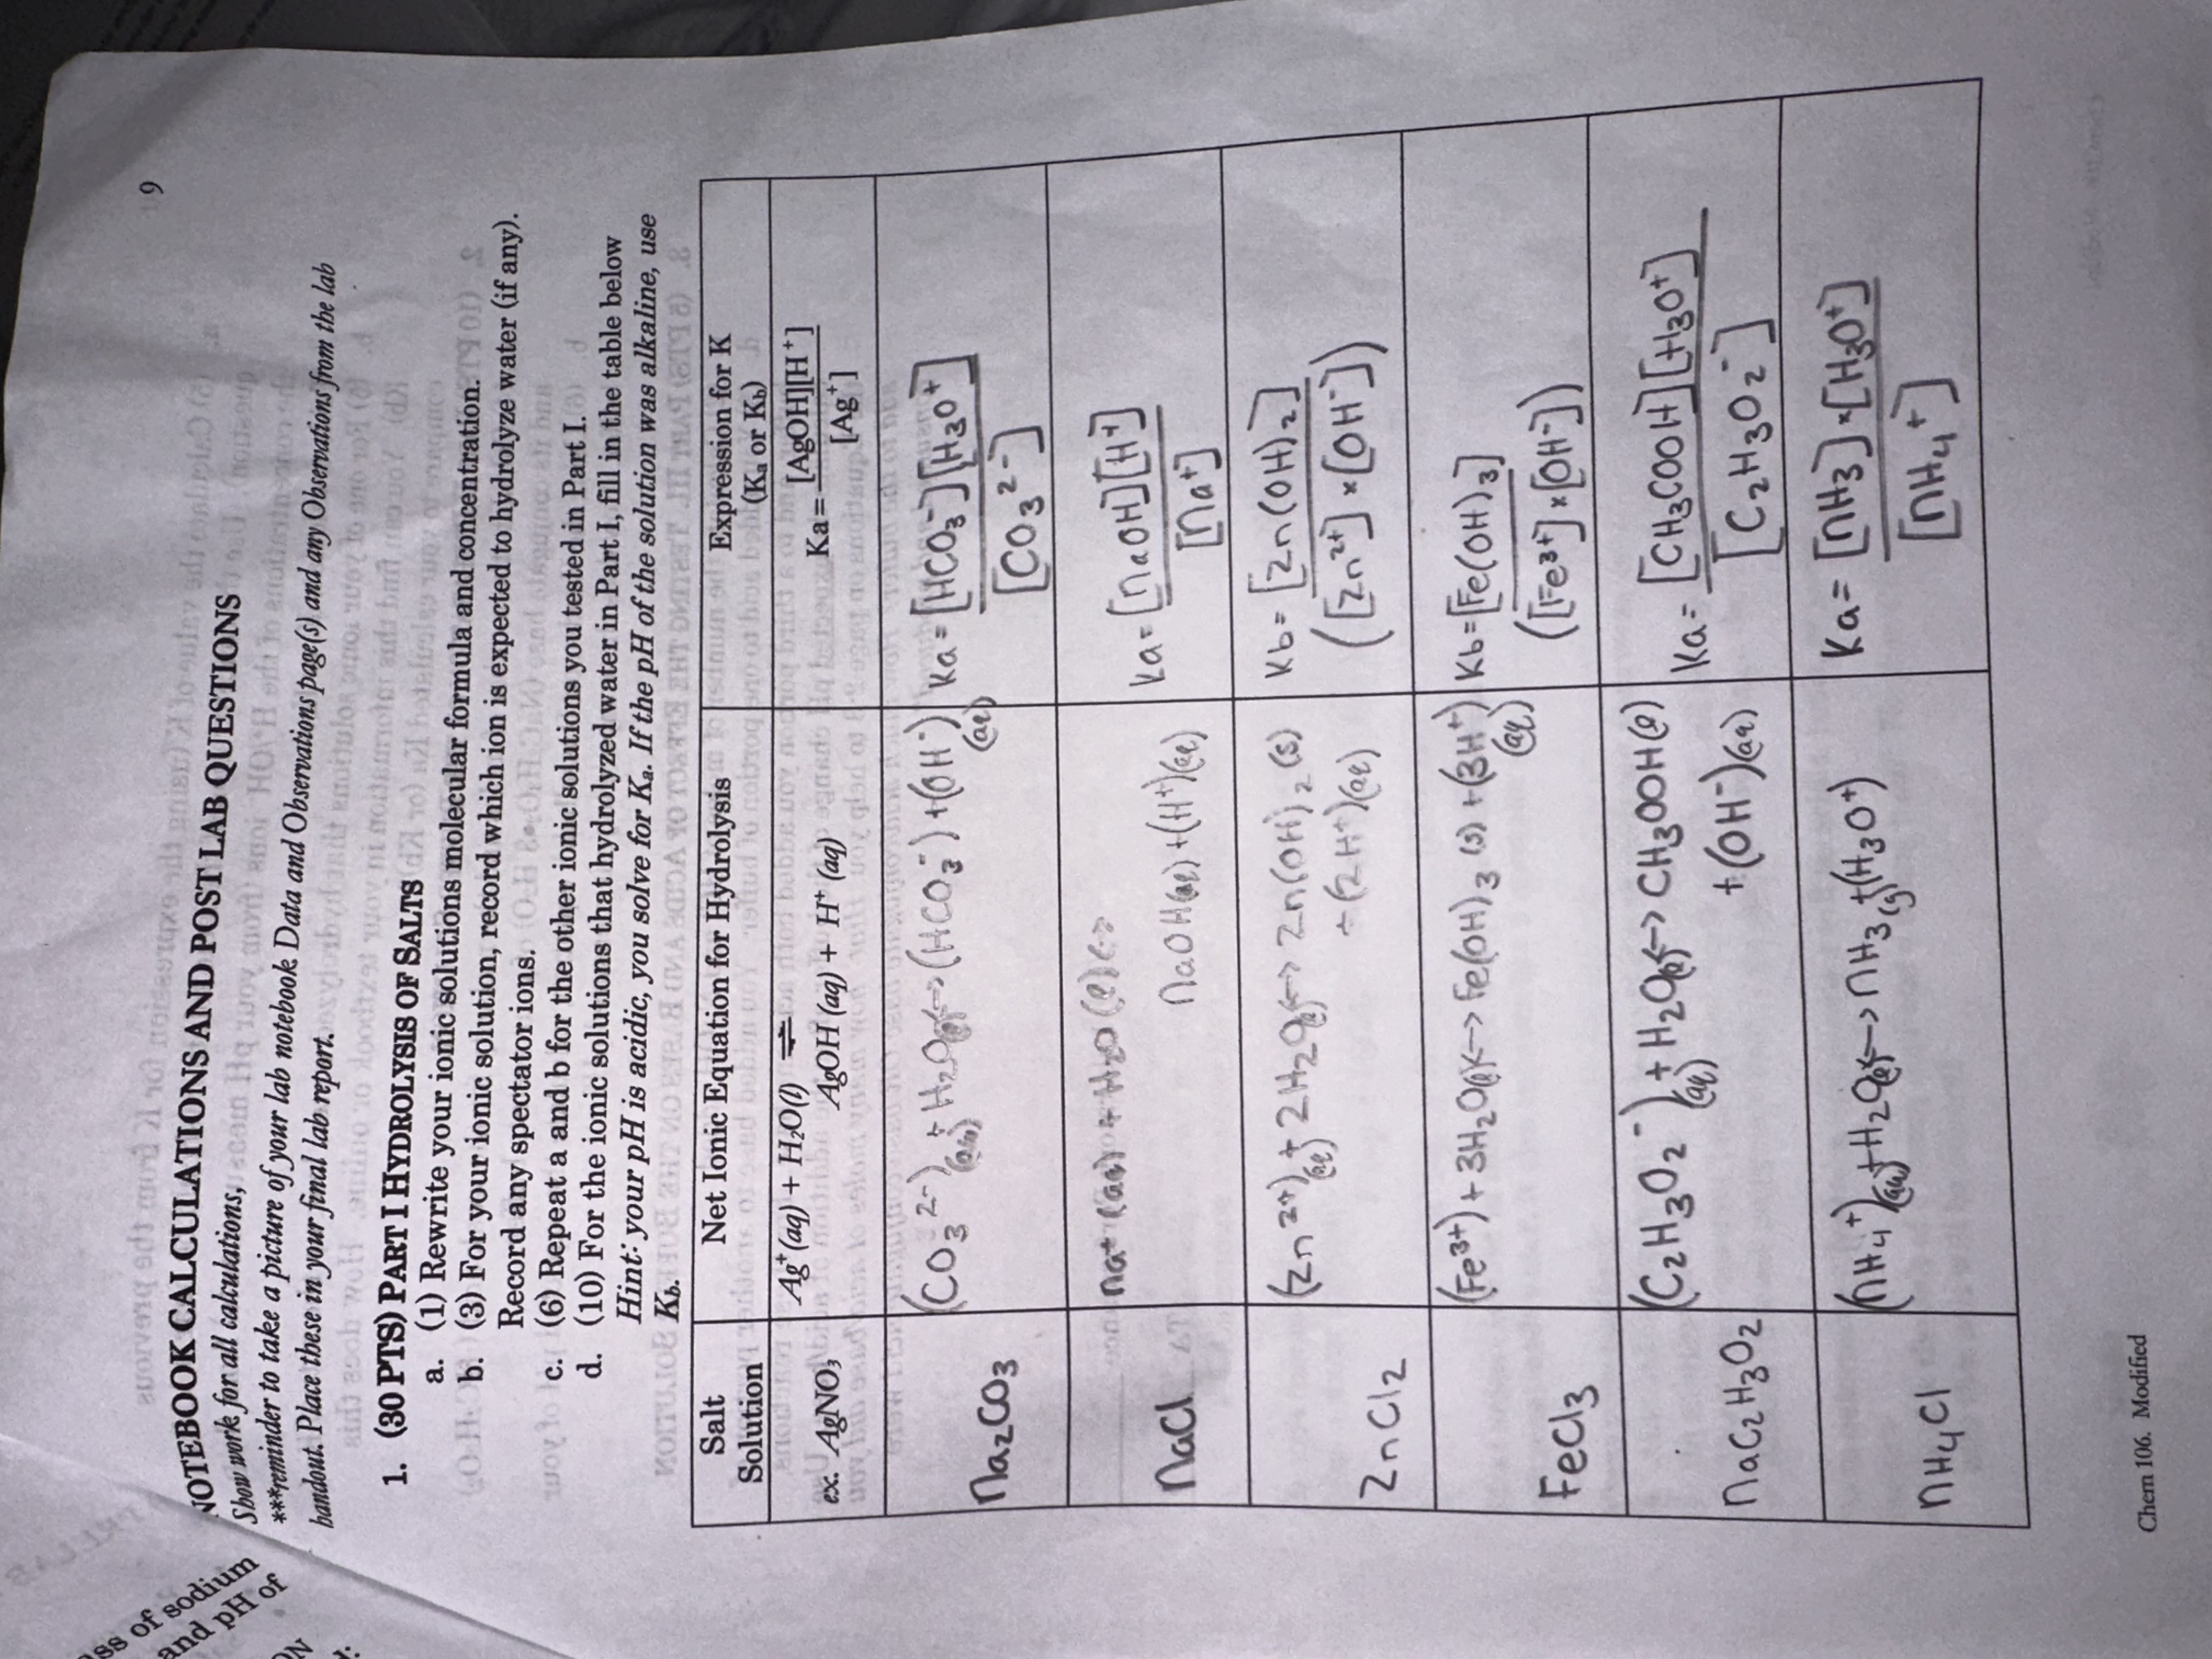 9
NOTEBOOK CALCULATIONS AND POST LAB QUESTIONS
Show work for all calculations,
***reminder to take a picture of your lab notebook Data and Observations page(s) and any Observations from the lab
handout. Place these in your final lab report.
1. (30 PTS) PART I HYDROLYSIS OF SALTS
a. (1) Rewrite your ionic solutions molecular formula and concentration.
b. (3) For your ionic solution, record which ion is expected to hydrolyze water (if any).
Record any spectator ions.
c. (6) Repeat a and b for the other ionic solutions you tested in Part I.
d. (10) For the ionic solutions that hydrolyzed water in Part I, fill in the table below
Hint: your pH is acidic, you solve for Ka. If the pH of the solution was alkaline, use
Kb.
Salt Solution
Net Ionic Equation for Hydrolysis
Expression for K (Ka or Kb)
ex. AgNO3
Ag+(aq) + H2O(l) ⇌
AgOH (aq) + H+ (aq)
Ka = [AgOH][H+]
[Ag+]
Na2CO3
(CO3 2-)(aq) + H2O(l) <-> (HCO3-) + (OH-)(aq)
Ka = [HCO3-][H3O+]
[CO3 2-]
NaCl
Na+ (aq) + H2O (l) <->
NaOH(aq) + (H+)(aq)
Ka = [NaOH][H+]
[Na+]
ZnCl2
(Zn 2+)(aq) + 2H2O(l) <-> Zn(OH)2 (s)
+ (2H+)(aq)
Kb = [Zn(OH)2]
([Zn2+] × [OH-])
FeCl3
(Fe3+) + 3H2O(l) <-> Fe(OH)3 (s) + (3H+)(aq)
Kb = [Fe(OH)3]
([Fe3+] × [OH-])
NaC2H3O2
(C2H3O2-)(aq) + H2O(l) <-> CH3OOH(l)
+ (OH-)(aq)
Ka = [CH3COOH][H3O+]
[C2H3O2-]
NH4Cl
(NH4+)(aq) + H2O(l) <-> NH3(g) + (H3O+)
Ka = [NH3] × [H3O+]
[NH4+]
Chem 106. Modified
ss of sodium
and pH of